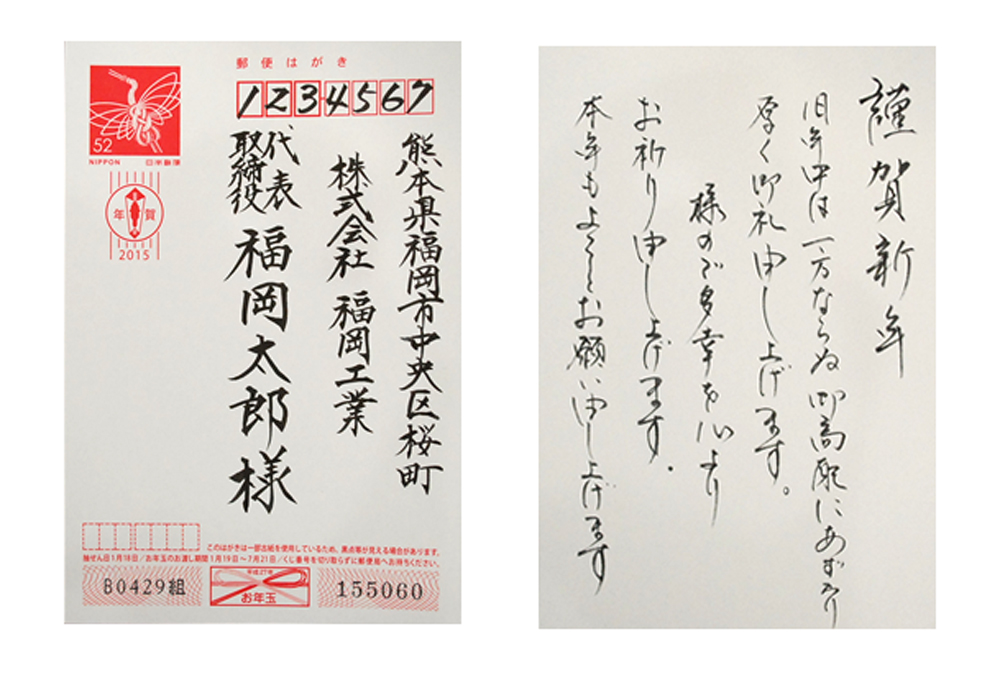 郵便はがき
1234567
52
NIPPON 日本郵便
年賀
2015
熊本県福岡市中央区桜町
株式会社 福岡工業
代表
取締役
福岡太郎様
このはがきは一部古紙を使用しているため、黒点等が見える場合があります。
抽せん日1月18日/お年玉のお渡し期間1月19日〜7月21日/くじ番号を切り取らずに郵便局へお持ちください。
B0429組
平成27年
お年玉
155060
謹賀新年
旧年中は一方ならぬ御高配にあずかり
厚く御礼申し上げます。
様のご多幸を心より
お祈り申し上げます。
本年もよろしくお願い申し上げます